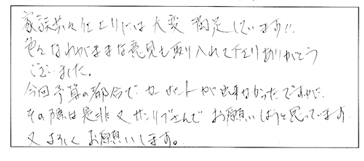 家族共々仕上りには大変満足しています!!
色んなわがままな意見も取り入れて下さりありがとう
ございました。
今回予算の都合で カーポートが出来なかったですが、
その際は是非又サンリブさんで お願いしようと思っています。
又よろしくお願いします。